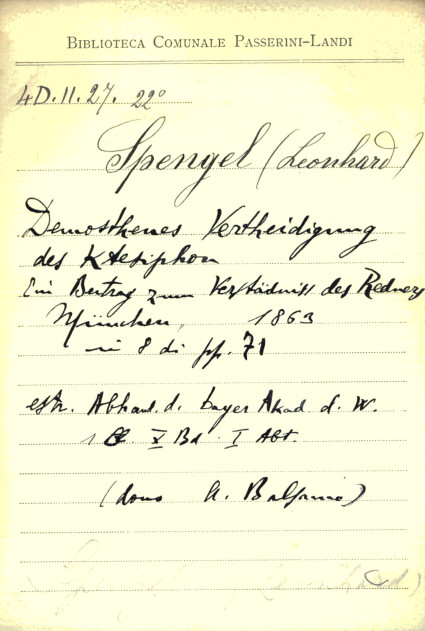 BIBLIOTECA COMUNALE PASSERINI-LANDI
4D.II.27. 22°
Spengel (Leonhard)
Demosthenes Vertheidigung
des Ktesiphon
Ein Beitrag zum Verstädniss des Redners
München, 1863
in 8 di pp. 71
estr. Abhanl. d. bayer Akad d. W.
1 Cl. X Bd. I Abt.
(dono A. Balsamo)
Spengel (Leonhard)